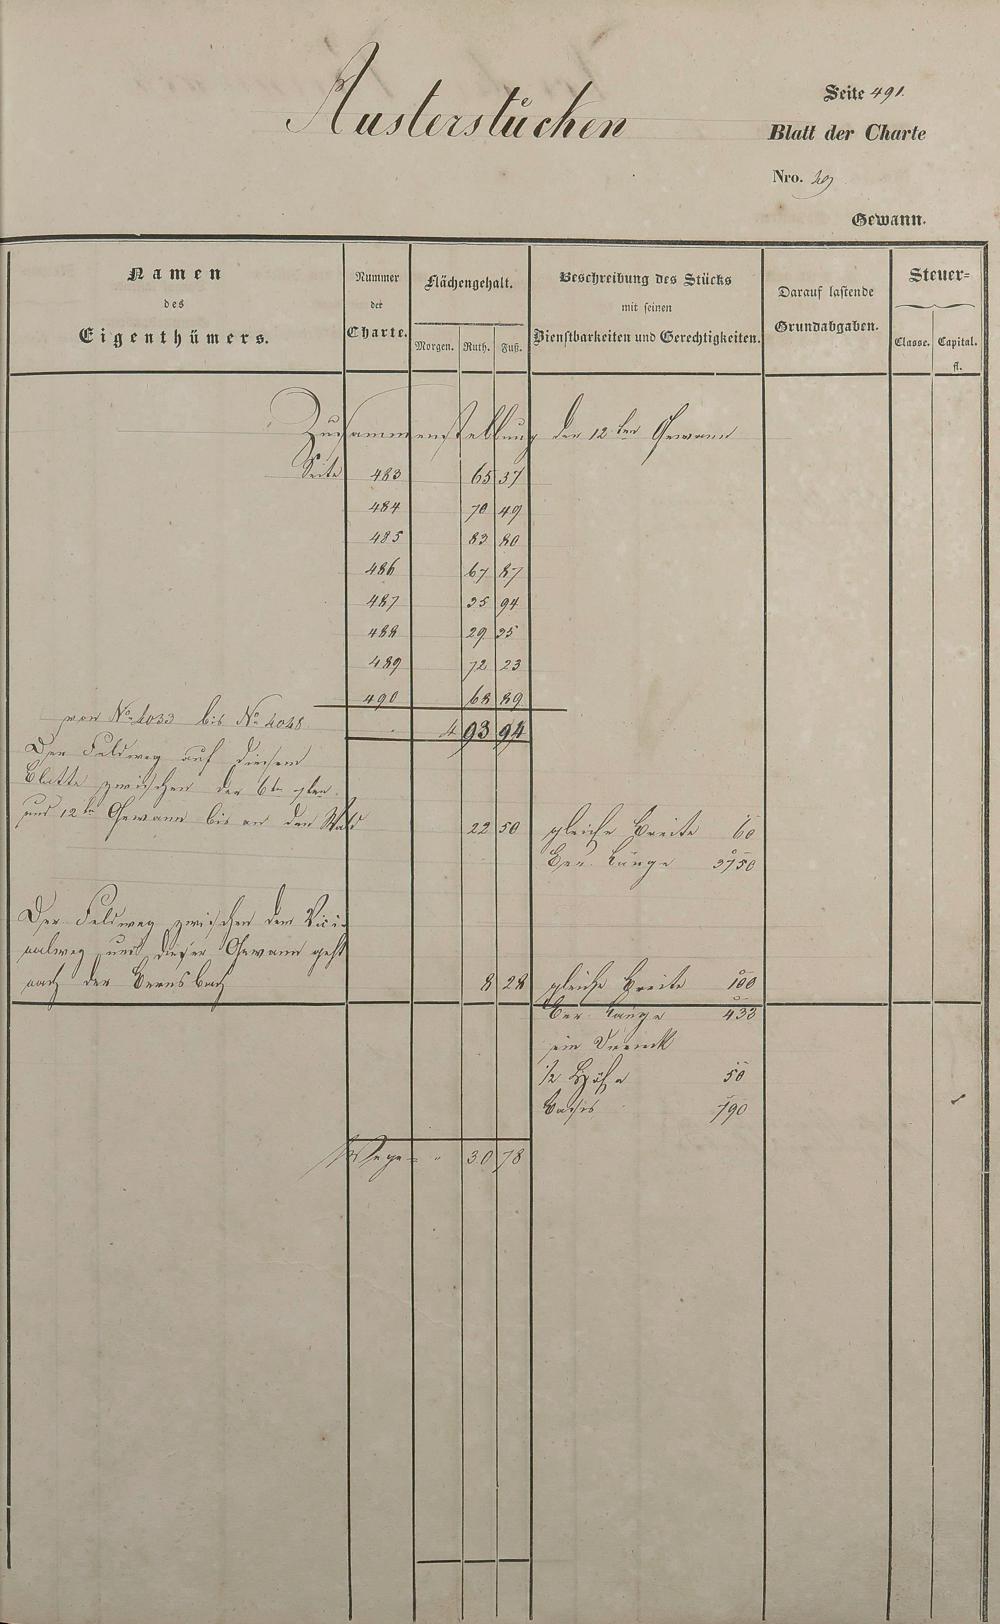 Austerstücken
Seite 491.
Blatt der Charte
Nro. 29
Gewann.
Namen
des
Eigenthümers.
Nummer
der
Charte.
Flächengehalt.
Morgen. Ruth. Fuß.
Beschreibung des Stücks
mit seinen
Dienstbarkeiten und Gerechtigkeiten.
Darauf lastende
Grundabgaben.
Steuer=
Classe. Capital.
fl.
Zusammenstellung der 12ten Gewann
Seite 483 65 37
484 70 49
485 83 80
486 67 87
487 35 94
488 29 35
489 72 23
490 68 89
von No 4033 bis No 4048 4 93 94
Der Feldweg auf diesem
Blatte zwischen der 6ten
und 12ten Gewann bis an den Wald 22 50 gleiche Breite 60
Ber. Länge 3750
Der Feldweg zwischen dem Vici-
nalweg und dieser Gewann geht
nach der Bernsbach 8 28 gleiche Breite 100
Ber. Länge 433
ein Dreieck
1/2 Höhe 50
Basis 790
Wege 30 78